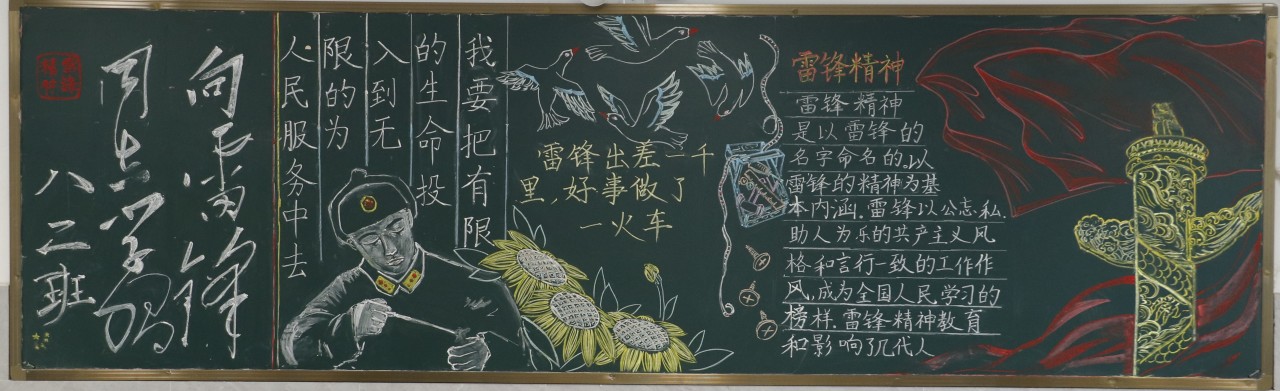 向雷锋
同志学习
八二班
我要把有限
的生命投
入到无
限的为
人民服务中去
雷锋出差一千
里,好事做了
一火车
雷锋精神
雷锋精神
是以雷锋的
名字命名的,以
雷锋的精神为基
本内涵.雷锋以公忘私.
助人为乐的共产主义风
格和言行一致的工作作
风,成为全国人民学习的
榜样.雷锋精神教育
和影响了几代人